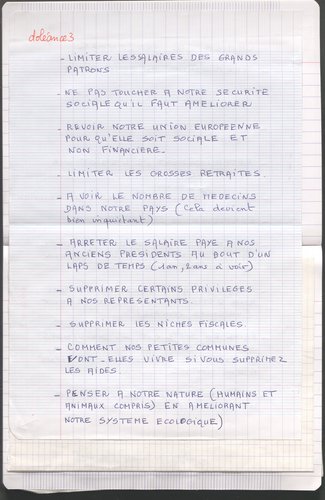 doléance 3
- LIMITER LES SALAIRES DES GRANDS
PATRONS
- NE PAS TOUCHER A NOTRE SECURITE
SOCIALE QU'IL FAUT AMELIORER
- REVOIR NOTRE UNION EUROPEENNE
POUR QU'ELLE SOIT SOCIALE ET
NON FINANCIERE.
- LIMITER LES GROSSES RETRAITES.
- A VOIR LE NOMBRE DE MEDECINS
DANS NOTRE PAYS (Cela devient
bien inquiétant)
- ARRETER LE SALAIRE PAYE A NOS
ANCIENS PRESIDENTS AU BOUT D'UN
LAPS DE TEMPS (1 an, 2 ans à voir)
- SUPPRIMER CERTAINS PRIVILEGES
A NOS REPRESENTANTS.
- SUPPRIMER LES NICHES FISCALES.
- COMMENT NOS PETITES COMMUNES
VONT-ELLES VIVRE SI VOUS SUPPRIMEZ
LES AIDES.
- PENSER A NOTRE NATURE (HUMAINS ET
ANIMAUX COMPRIS) EN AMELIORANT
NOTRE SYSTEME ECOLOGIQUE)